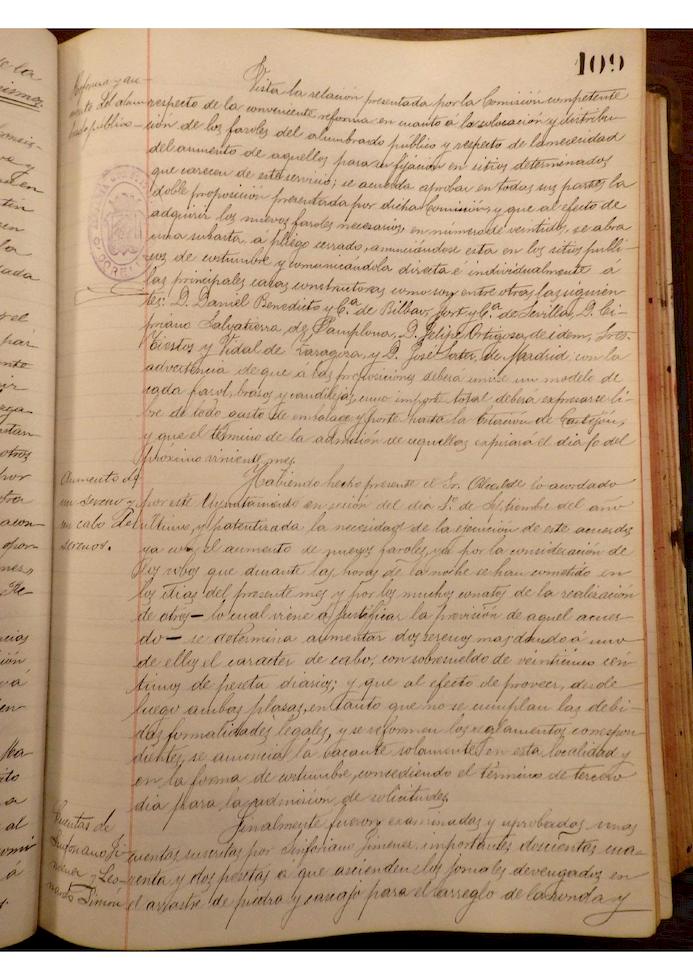 109
Reforma y au-
mento del alum-
brado público.
Vista la relación presentada por la Comisión competente
respecto de la conveniente reforma en cuanto á la colocación y distribu-
ción de los faroles del alumbrado público y respecto de la necesidad
del aumento de aquellos para su fijación en sitios determinados
que carecen de este servicio; se acuerda aprobar en todas sus partes la
doble proposición presentada por dicha Comisión y que al efecto de
adquirir los nuevos faroles necesarios, en número de veintidos, se abra
una subasta a pliego cerrado, anunciándose esta en los sitios públi-
cos de costumbre y comunicándola directa é individualmente a
las principales casas constructoras como son entre otras las siguien-
tes: D. Daniel Benedicto y Cª de Bilbao, y Cª de Sevilla, D. Ci-
priano Salvatierra de Pamplona, D. Felipe Ortigosa de idem, Sres.
y Vidal de Zaragoza, y D. José de Madrid, con la
advertencia de que á las proposiciones deberá unirse un modelo de
cada farol, brazo y candileja, cuyo importe total deberá expresarse li-
bre de todo gasto de embalage y porte hasta la Estación de Castejón,
y que el término de la admisión de aquellos expirará el día del
próximo viniente mes.
Aumento de
un sereno y
un cabo de
serenos.
Habiendo hecho presente el Sr. Alcalde lo acordado
por este Ayuntamiento en sesión del día 1º de Septiembre del año
último, y patentizada la necesidad de la ejecución de este acuerdo
ya con el aumento de nuevos faroles, ya por la consideración de
los robos que durante las horas de la noche se han cometido en
los días del presente mes y por los muchos conatos de la realización
de otros — lo cual viene a justificar la previsión de aquel acuer-
do — se determina aumentar dos serenos mas dando á uno
de ellos el caracter de cabo, con sobresueldo de veinticinco cén-
timos de peseta diarios; y que al efecto de proveer, desde
luego ambas plazas, en tanto que no se cumplan las debi-
das formalidades legales, y se reformen los reglamentos correspon-
dientes, se anuncia la vacante solamente en esta localidad y
en la forma de costumbre, concediendo el término de tercero
día para la admisión de solicitudes.
Cuentas de
Sinforiano Ji-
menez y Leo-
nardo Simón
Finalmente fueron examinadas y aprobadas unas
cuentas suscritas por Sinforiano Jimenez importantes doscientas cua-
renta y dos pesetas a que ascienden los jornales devengados en
el arrastre de piedra y cascajo para el arreglo de la ronda y